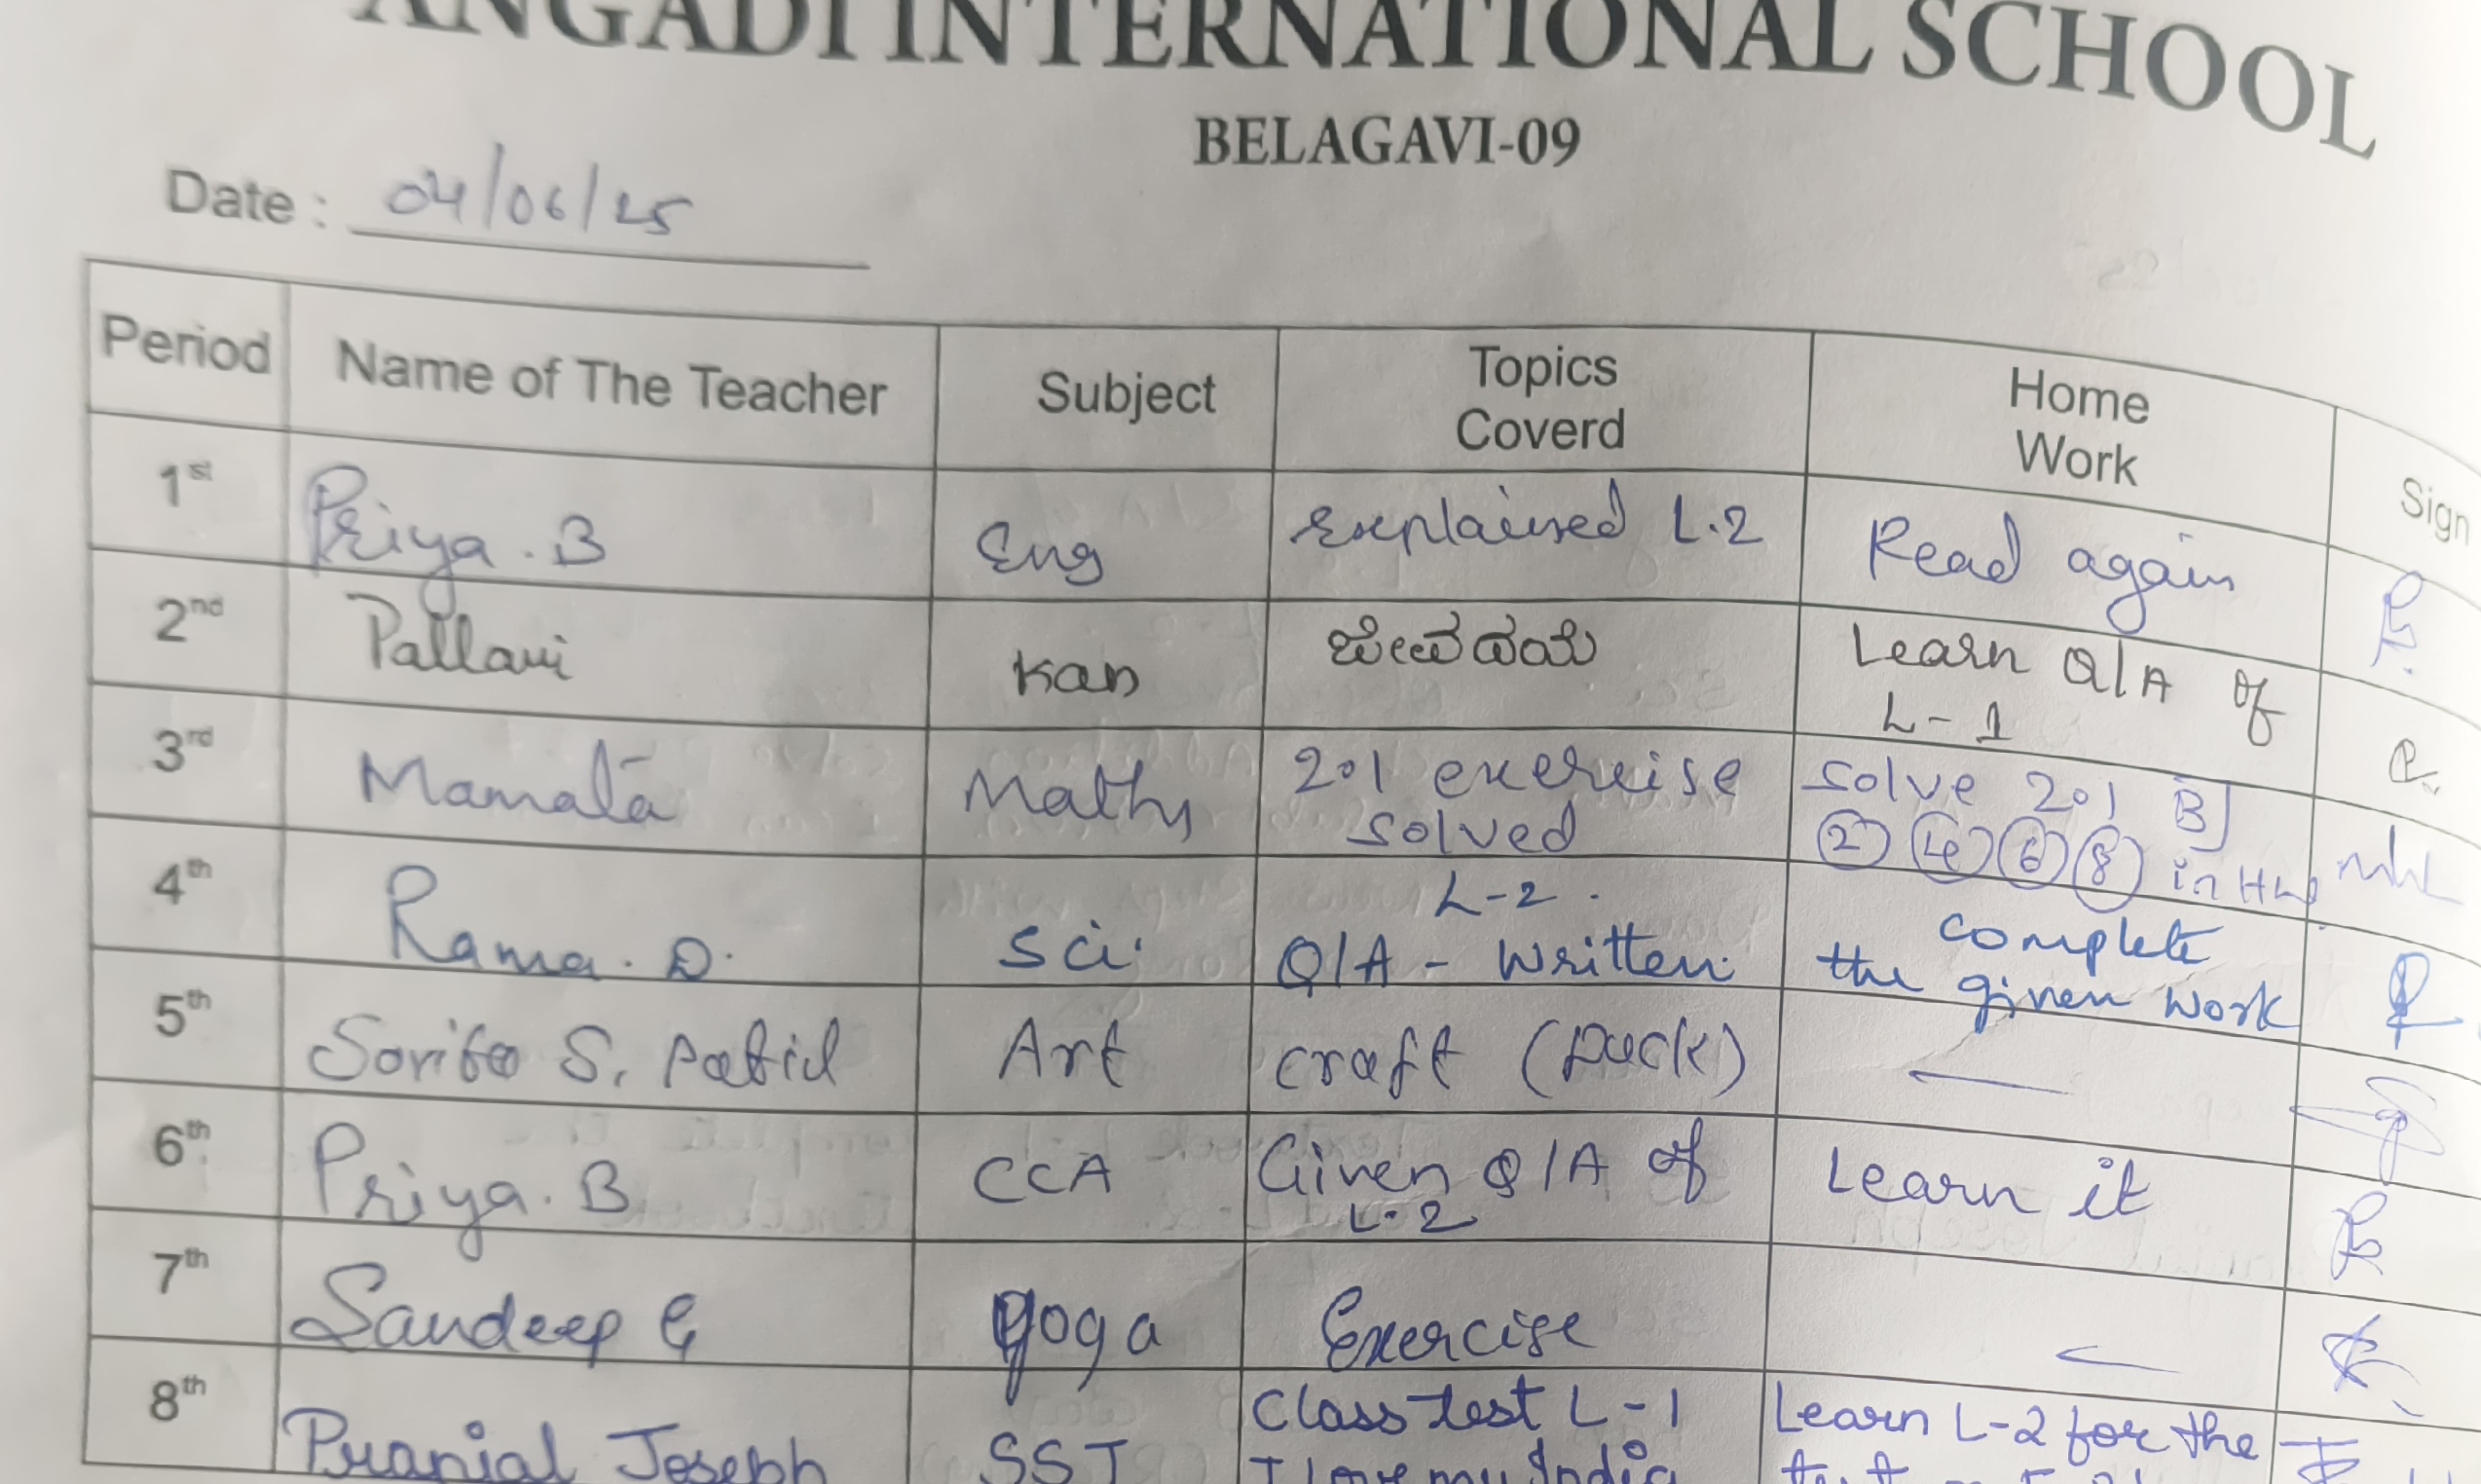 ANGADI INTERNATIONAL SCHOOL
BELAGAVI-09
Date : 04/06/25
Period Name of The Teacher Subject Topics Coverd Home Work Sign
1st Priya. B Eng Explained L.2 Read again
2nd Pallavi Kan ಜೀವದಯೆ Learn Q/A of L-1
3rd Mamata Maths 2.1 exercise solved Solve 2.1 B] 2 4 6 8 in HW
4th Rama. D. Sci. L-2. Q/A - Written. complete the given work
5th Savita S. Patil Art craft (Duck) —
6th Priya. B CCA Given Q/A of L.2 Learn it
7th Sandeep G Yoga Exercise —
8th Joseph SST Class test L-1 I love my India Learn L-2 for the